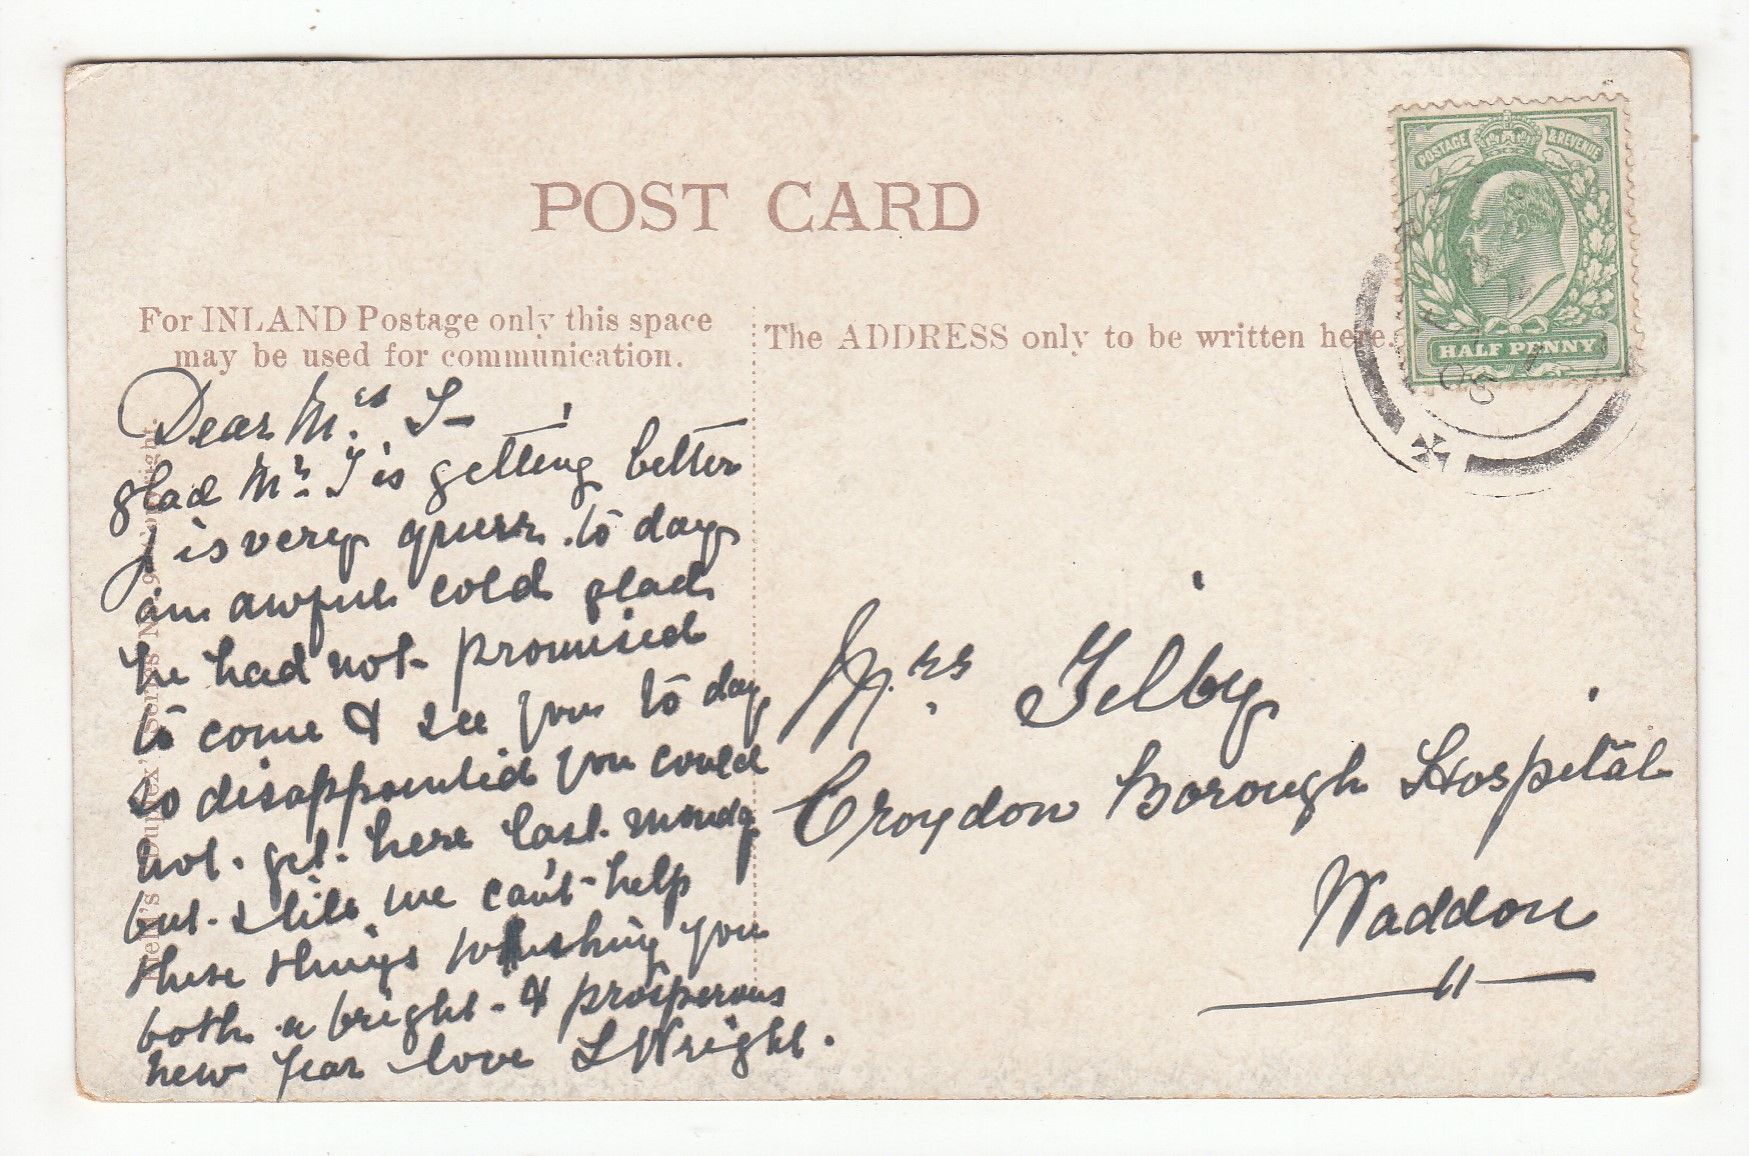 POST CARD
For INLAND Postage only this space
may be used for communication.
The ADDRESS only to be written here.
Dear Mrs. T
glad Mr. T is getting better
J is very queer to day
an awful cold glad
he had not promised
to come & see you to day
so disappointed you could
not get here last monday
but still we can't help
these things wishing you
both a bright & prosperous
new year love L Wright.
Mrs. Tilby
Croydon Borough Hospital
Waddon
POSTAGE & REVENUE
HALF PENNY